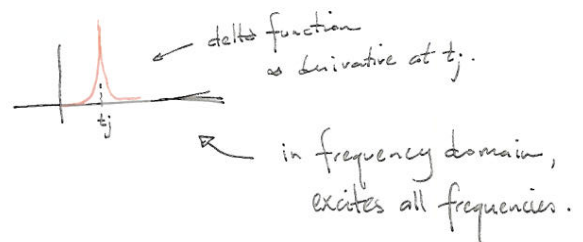 delta function
∞ derivative at tj.
tj
in frequency domain,
excites all frequencies.